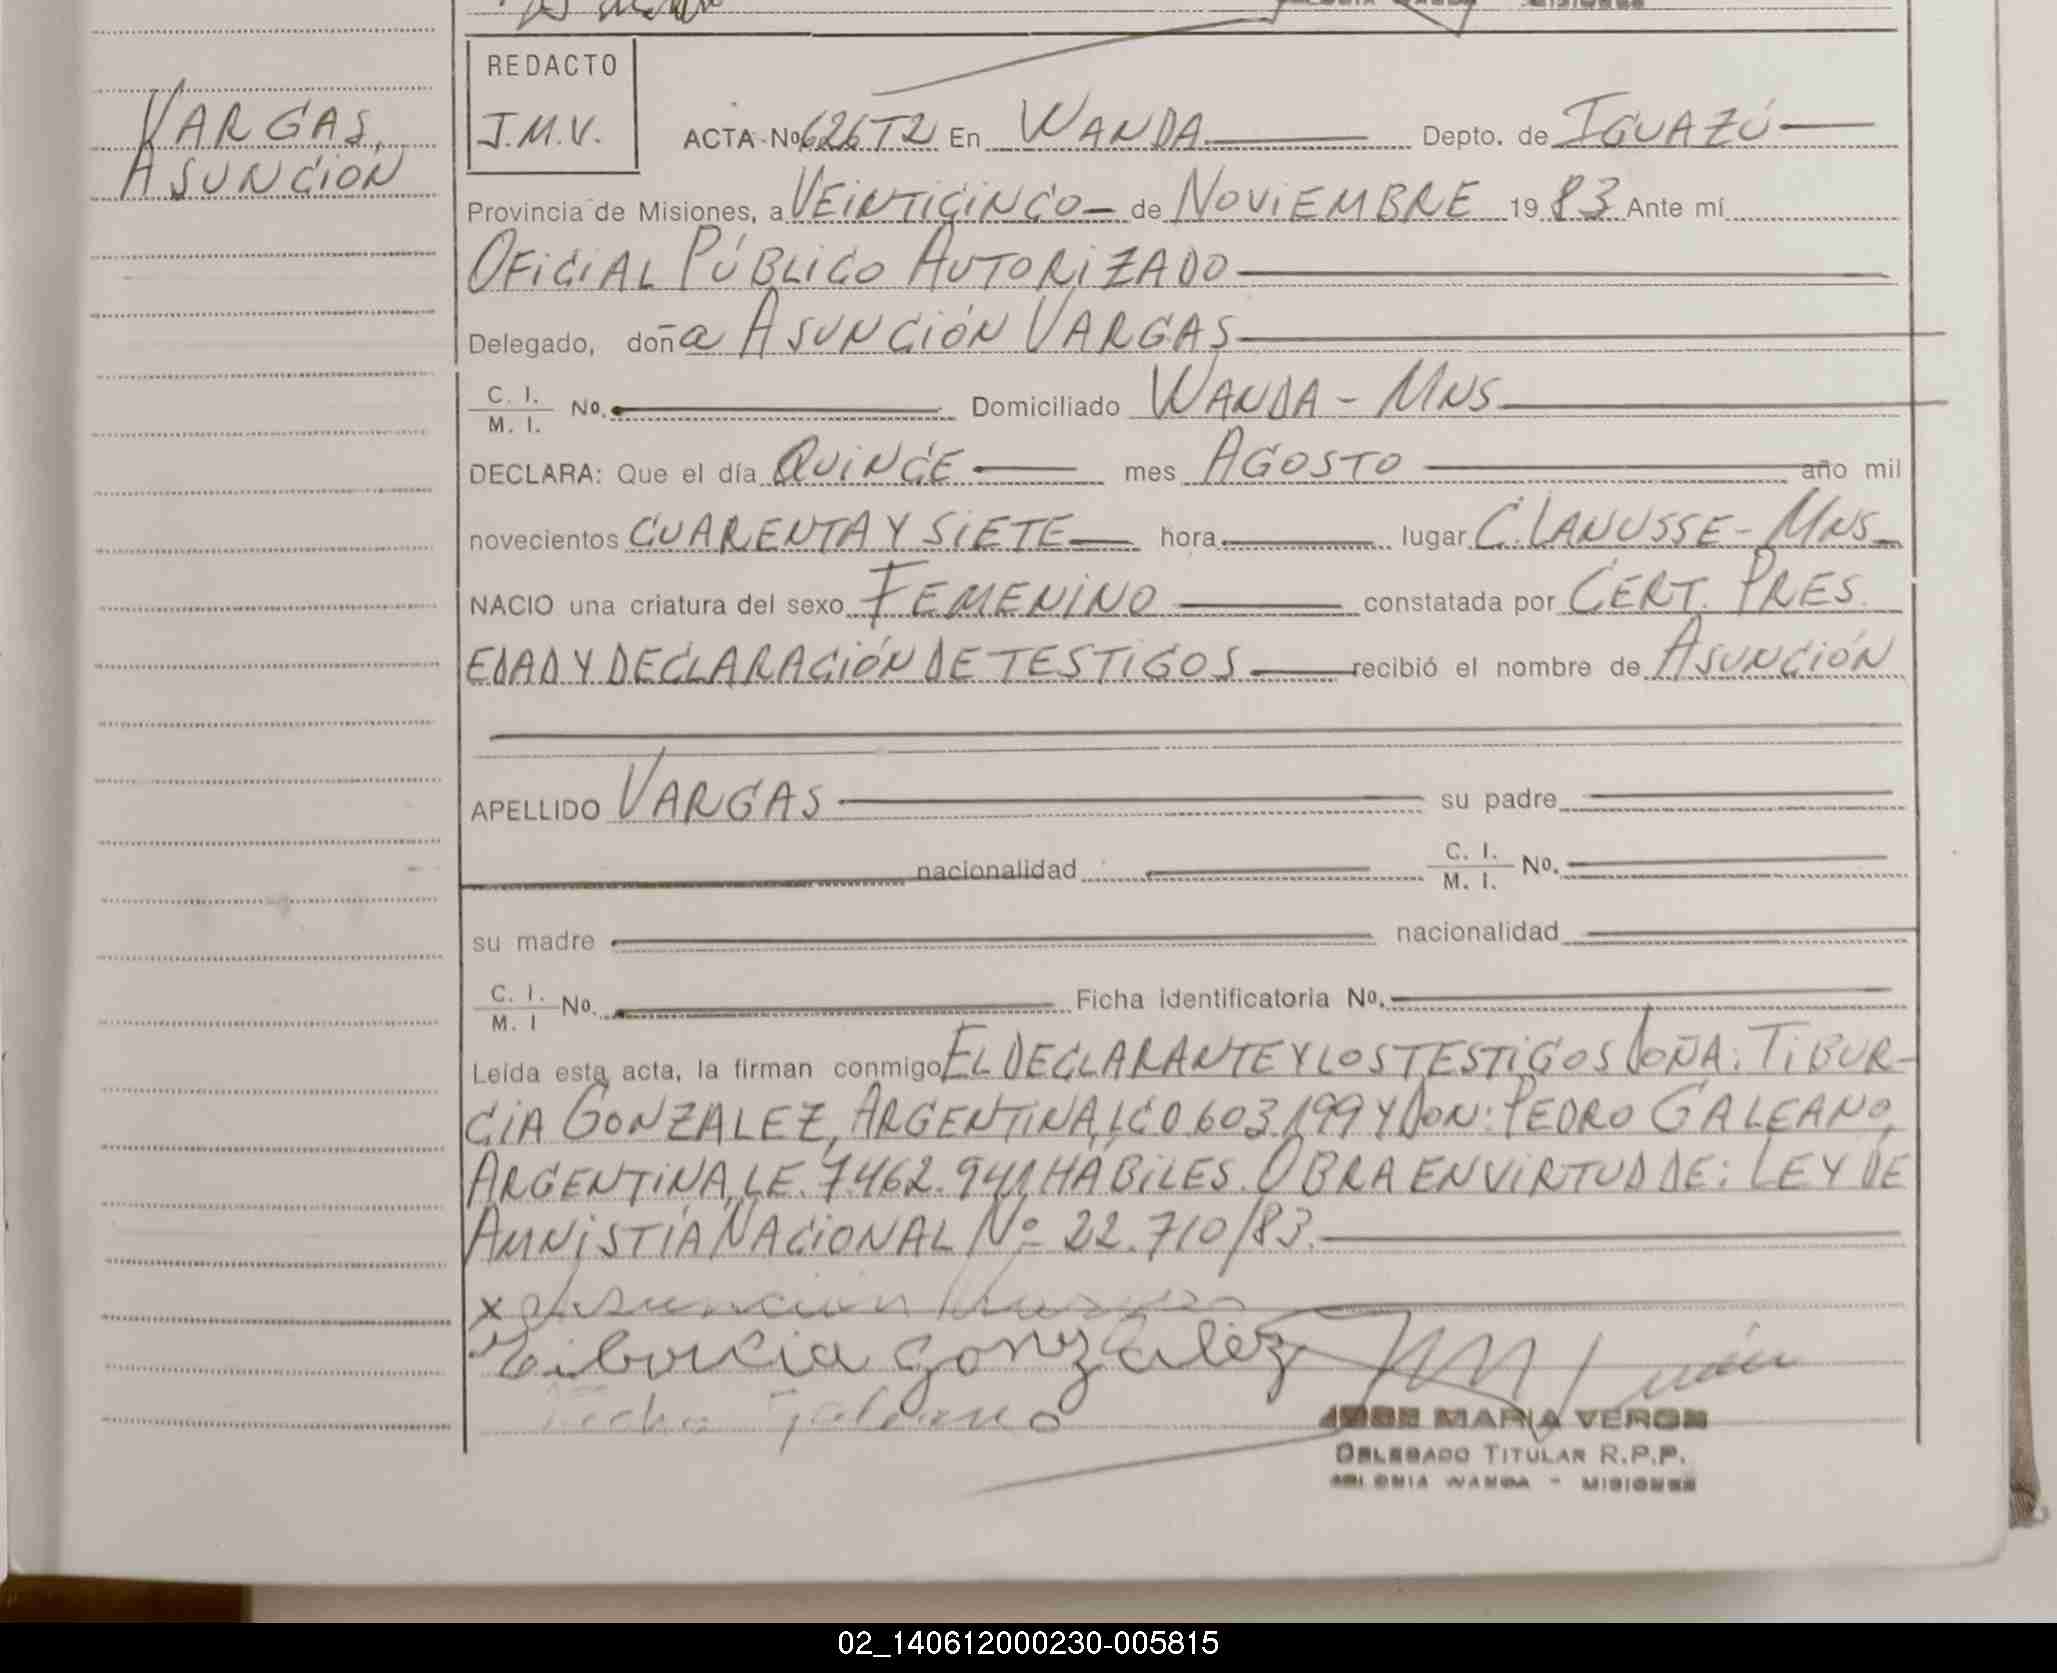 VARGAS,
ASUNCIÓN
REDACTO
J.M.V.
ACTA Nº 626 T2 En WANDA Depto. de IGUAZÚ
Provincia de Misiones, a VEINTICINCO de NOVIEMBRE 19 83 Ante mí
OFICIAL PÚBLICO AUTORIZADO
Delegado, doña ASUNCIÓN VARGAS
C. I.
M. I. No. Domiciliado WANDA - MNS
DECLARA: Que el día QUINCE mes AGOSTO año mil
novecientos CUARENTA Y SIETE hora lugar C. LANUSSE - MNS
NACIO una criatura del sexo FEMENINO constatada por CERT. PRES.
EDAD Y DECLARACIÓN DE TESTIGOS recibió el nombre de ASUNCIÓN
APELLIDO VARGAS su padre
nacionalidad C. I.
M. I. No.
su madre nacionalidad
C. I.
M. I No. Ficha identificatoria No.
Leída esta acta, la firman conmigo EL DECLARANTE Y LOS TESTIGOS DOÑA: TIBUR-
CIA GONZALEZ, ARGENTINA, LC 0.603.199 Y DON: PEDRO GALEANO,
ARGENTINA, LE. 7.462.941 HABILES. OBRA EN VIRTUD DE: LEY DE
AMNISTÍA NACIONAL Nº 22.710/83.
x Asuncion Vargas
Tiburcia gonzalez
Galeano
JOSE MARIA VERON
DELEGADO TITULAR R.P.P.
COLONIA WANDA - MISIONES
02_140612000230-005815